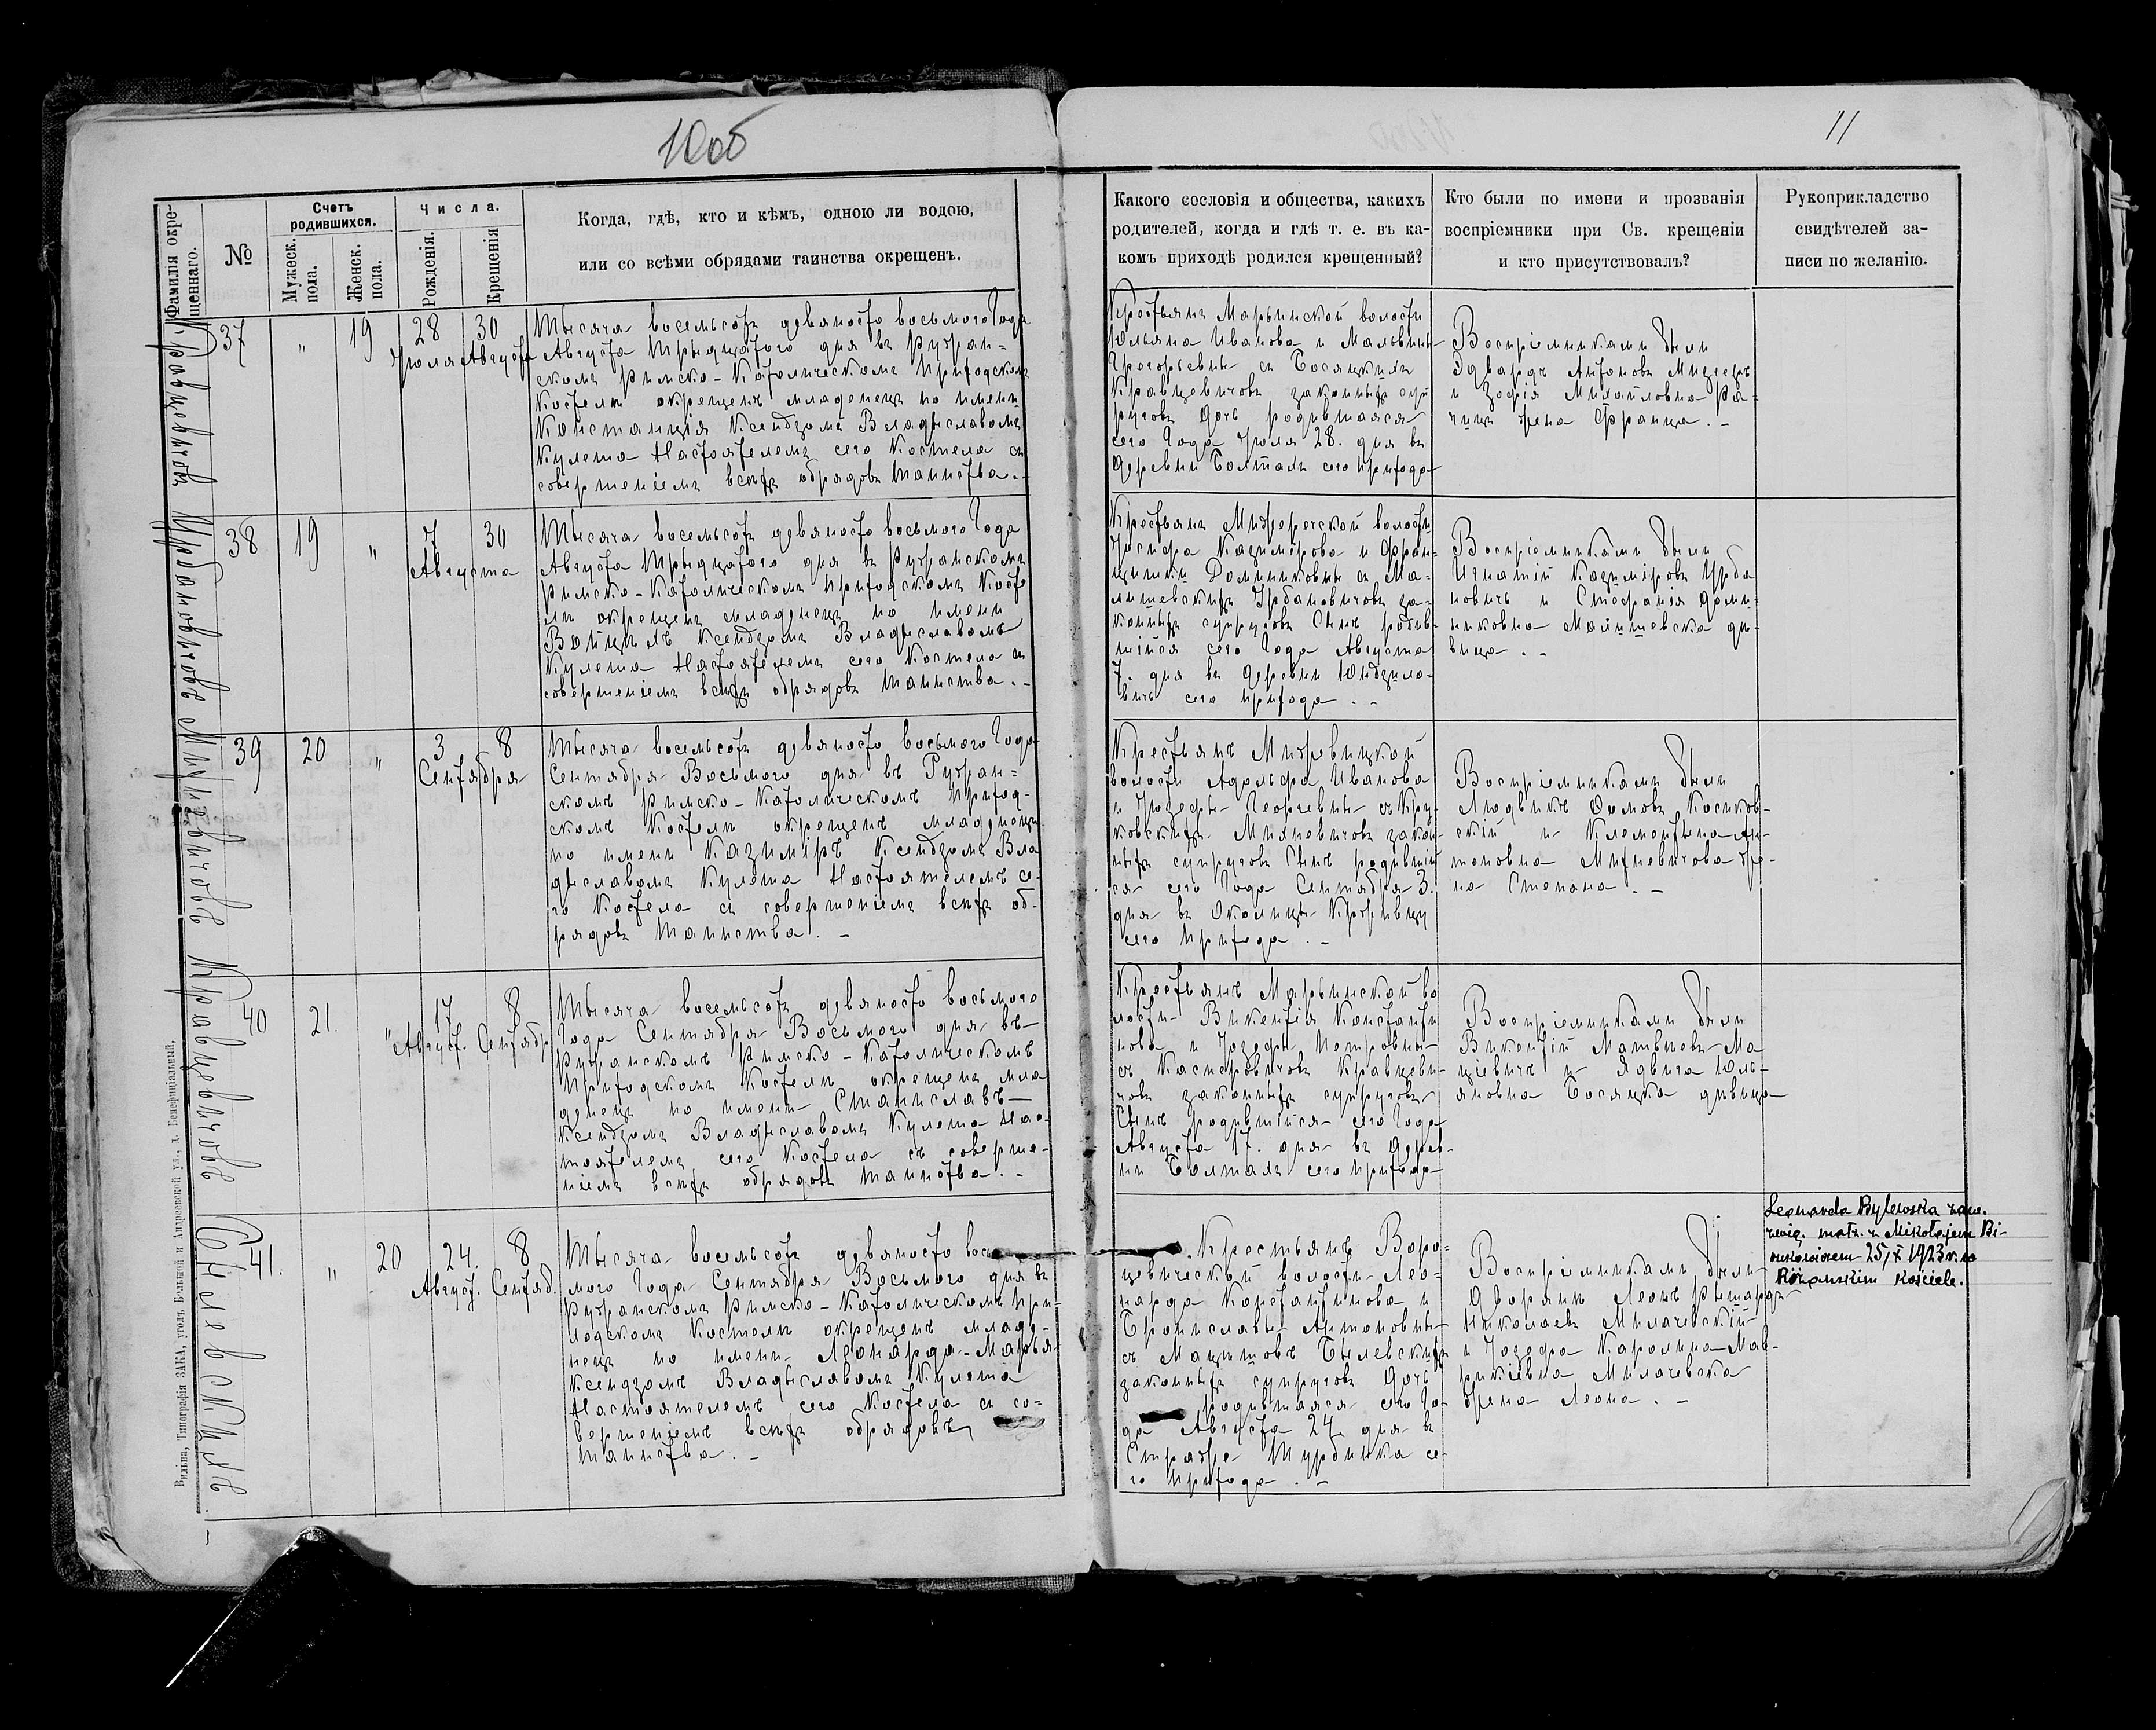 10об
11
Фамилія окре-
щеннаго.
№
Счетъ
родившихся.
Мужеск.
пола.
Женск.
пола.
Числа.
Рожденія.
Крещенія
Когда, гдѣ, кто и кѣмъ, одною ли водою,
или со всѣми обрядами таинства окрещенъ.
Какого сословія и общества, какихъ
родителей, когда и гдѣ т. е. въ ка-
комъ приходѣ родился крещенный?
Кто были по имени и прозванія
воспріемники при Св. крещеніи
и кто присутствовалъ?
Рукоприкладство
свидѣтелей за-
писи по желанію.
Кравцевичовъ
37
"
19
28
Іюля
30
Августа
Тысяча восемьсотъ девяносто восьмого Года
Августа Тридцатого дня въ Ружан-
скомъ Римско-Католическомъ Приходскомъ
Костелѣ окрещенъ младенецъ по имени
Констанція Ксендзомъ Владиславомъ
Кулеша Настоятелемъ сего Костела съ
совершеніемъ всѣхъ обрядовъ Таинства. -
Крестьянъ Марьинской волости
Юльяна Иванова и Мальвины
Григорьевны съ Босяцкихъ
Кравцевичовъ законныхъ суп
руговъ Дочь родившаяся
сего Года Іюля 28. дня въ
Деревни Болталъ сего прихода
Воспріемниками были
Эдвардъ Антоновъ
и Зофія Михайловна
жена Франца. -
Урбановичовъ
38
19
"
7
30
Августа
Тысяча восемьсотъ девяносто восьмого Года
Августа Тридцатого дня въ Ружанскомъ
Римско-Католическомъ Приходскомъ Косте
лѣ окрещенъ младенецъ по имени
Войцехъ Ксендзомъ Владиславомъ
Кулеша Настоятелемъ сего Костела съ
совершеніемъ всѣхъ обрядовъ Таинства. -
Крестьянъ волости
Іосифа Казимірова и Фран-
цишки Доминиковны съ Ма-
лишевскихъ Урбановичовъ за-
конныхъ супруговъ Сынъ родив-
шійся сего Года Августа
7. дня въ Деревни Юндзило-
вичъ сего прихода. -
Воспріемниками были
Игнатій Казиміровъ Урба
новичъ и Стефанія Доми-
никовна Малишевска дѣ-
вица. -
Михневичовъ
39
20
"
3
8
Сентября
Тысяча восемьсотъ девяносто восьмого Года
Сентября Восьмого дня въ Ружан-
скомъ Римско-Католическомъ Приход-
скомъ Костелѣ окрещенъ младенецъ
по имени Казиміръ Ксендзомъ Вла
диславомъ Кулеша Настоятелемъ се-
го Костела съ совершеніемъ всѣхъ об-
рядовъ Таинства. -
Крестьянъ
волости Адольфа Иванова
и Іозефы Георгевны съ Кру-
ковскихъ Михневичовъ закон-
ныхъ супруговъ Сынъ родившій
ся сего Года Сентября 3.
дня въ Околицѣ
сего прихода. -
Воспріемниками были
Людвикъ Ѳомовъ Косиков-
скій и Клементына Ан-
тоновна Михневичова же-
на Степана. -
Кравцевичовъ
40
21.
"
17
Август.
8
Сентябр
Тысяча восемьсотъ девяносто восьмого
Года Сентября Восьмого дня въ
Ружанскомъ Римско-Католическомъ
Приходскомъ Костелѣ окрещенъ мла
денецъ по имени Станиславъ
Ксендзомъ Владиславомъ Кулеша Нас-
тоятелемъ сего Костела съ соверше-
ніемъ всѣхъ обрядовъ Таинства. -
Крестьянъ Марьинской во
лости Викентія Константи
нова и Іозефы Петровны
съ Касперовичовъ Кравцеви-
човъ законныхъ супруговъ
Сынъ родившійся сего Года
Августа 17. дня въ Дерев-
ни Болталъ сего прихода
Воспріемниками были
Викентій Матвѣевъ Ма
цѣевичъ и Ядвига Юль-
яновна Босяцка дѣвица
Былевскихъ. -
41.
"
20
24.
Август.
8
Сентяб.
Тысяча восемьсотъ девяносто вось
мого Года Сентября Восьмого дня въ
Ружанскомъ Римско-Католическомъ При-
ходскомъ Костелѣ окрещенъ младе-
нецъ по имени Леонарда-Марья
Ксендзомъ Владиславомъ Кулеша
Настоятелемъ сего Костела съ со-
вершеніемъ всѣхъ обрядовъ
Таинства. -
Крестьянъ Воро-
цевичской волости Лео-
нарда Константинова и
Брониславы Антоновны
съ Былевскихъ
законныхъ супруговъ Дочь
родившаяся сего Го-
да Августа 24 дня въ
се-
го прихода. -
Воспріемниками были
Дворянъ Леонъ Рышардъ
Николаевъ Милачевскій
и Іозефа Каролина Мав-
рикіевна Милачевска
жена Леона. -
Leonarda Bylewska zaw.
zwią. małż. z Mikołajem Bi-
25/X 1923 r. w
Różańskim kościele.
Вильна, Типографія ЗАКА, уголъ Большой и Андреевской ул., д. Бенефиціальный.